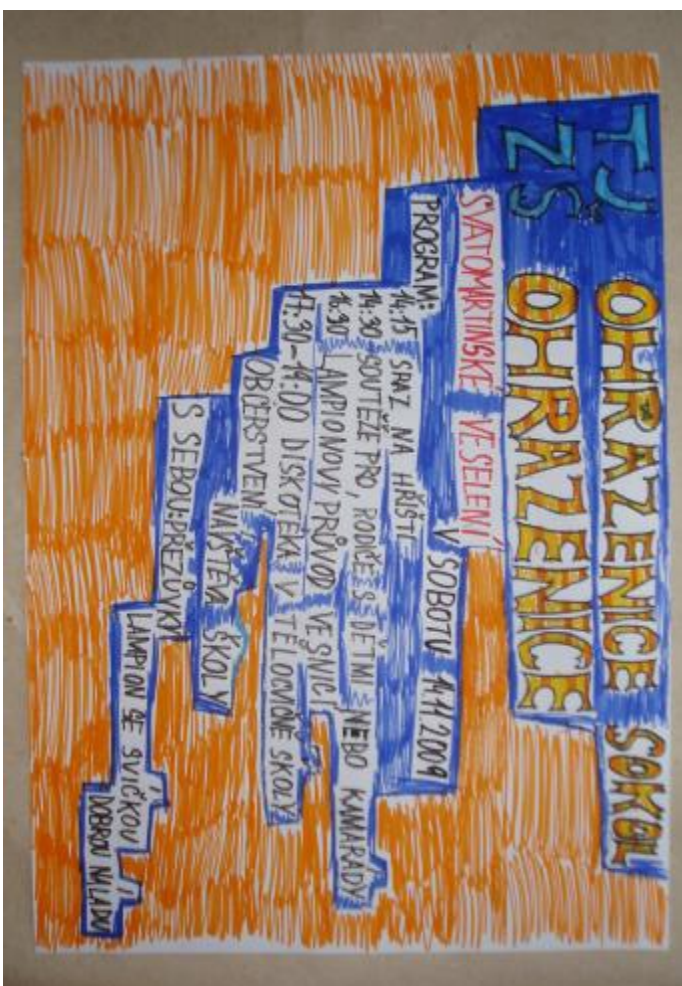 TJ OHRAZENICE SOKOL
ZŠ OHRAZENICE
SVATOMARTINSKÉ VESELENÍ
V SOBOTU 14.11 2009
PROGRAM:
14:15 SRAZ NA HŘIŠTI
14:30 SOUTĚŽE PRO, RODIČE S DĚTMI NEBO KAMARÁDY
16:30 LAMPIONOVÝ PRŮVOD VESNICÍ
17:30-19:00 DISKOTÉKA V TĚLOCVIČNĚ ŠKOLY
OBČERSTVENÍ
NÁVŠTĚVA ŠKOLY
S SEBOU: PŘEZŮVKY
LAMPION SE SVÍČKOU
DOBROU NÁLADU